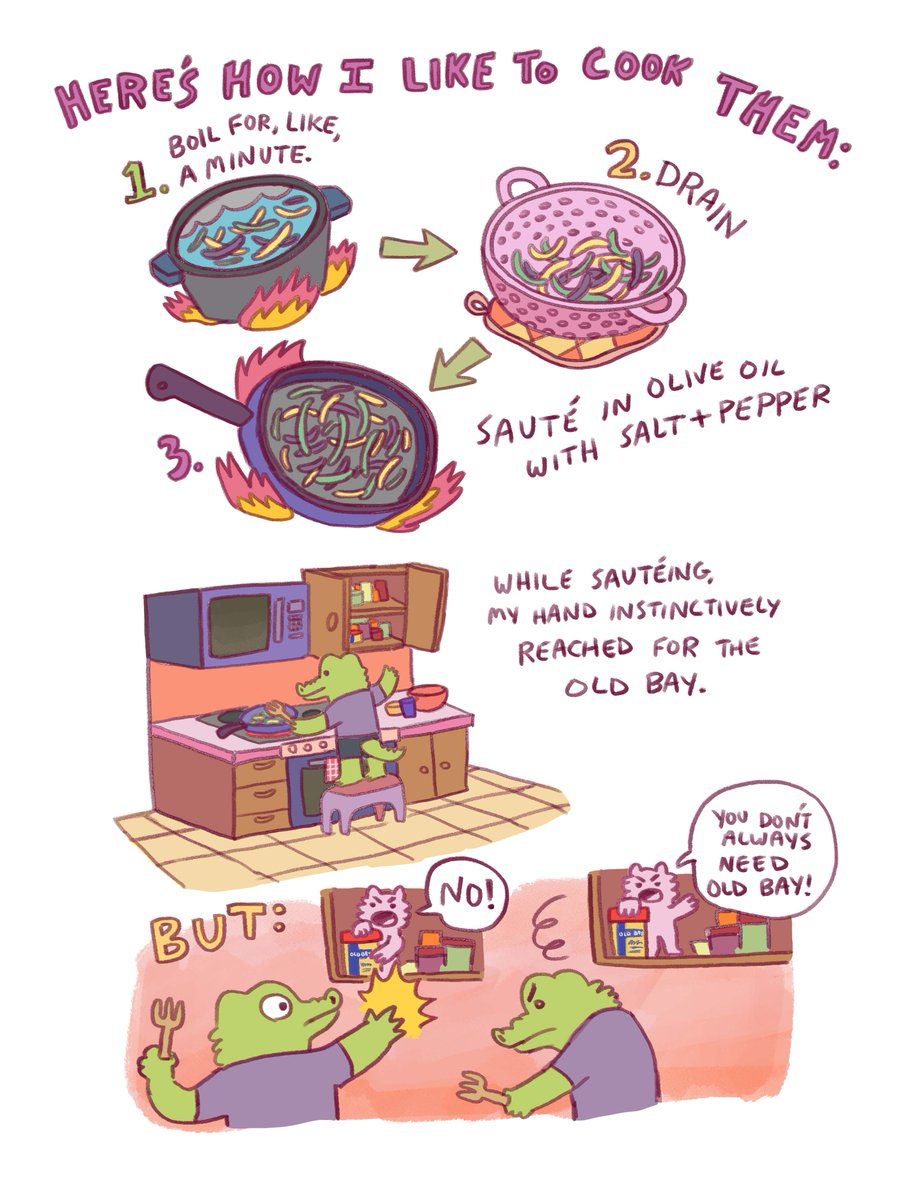 HERE'S HOW I LIKE TO COOK THEM:
1. BOIL FOR, LIKE,
A MINUTE.
2. DRAIN
3.
SAUTÉ IN OLIVE OIL
WITH SALT + PEPPER
WHILE SAUTÉING,
MY HAND INSTINCTIVELY
REACHED FOR THE
OLD BAY.
BUT:
NO!
OLD BAY
YOU DON'T
ALWAYS
NEED
OLD BAY!
OLD BAY